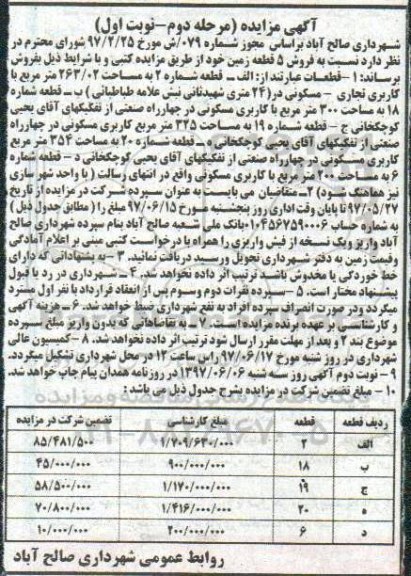 آگهی مزایده (مرحله دوم-نوبت اول)
شهرداری صالح آباد براساس مجوز شماره ۰۷۹/ش مورخ ۹۷/۲/۲۵ شورای محترم در
نظر دارد نسبت به فروش ۵ قطعه زمین خود از طریق مزایده کتبی و با شرایط ذیل بفروش
برساند: ۱- قطعات عبارتند از: الف ـ قطعه شماره ۲ به مساحت ۲۶۳/۰۲ متر مربع با
کاربری تجاری - مسکونی در (۲۴ متری شهیدثانی نبش علامه طباطبائی) ب ـ قطعه شماره
۱۸ به مساحت ۳۰۰ متر مربع با کاربری مسکونی در چهارراه صنعتی از تفکیکهای آقای یحیی
کوچکخانی ج - قطعه شماره ۱۹ به مساحت ۳۲۵ متر مربع کاربری مسکونی در چهارراه
صنعتی از تفکیکهای آقای یحیی کوچکخانی ه ـ قطعه شماره ۲۰ به مساحت ۳۵۴ متر مربع
کاربری مسکونی در چهارراه صنعتی از تفکیکهای آقای یحیی کوچکخانی د - قطعه شماره
۶ به مساحت ۲۰۰ متر مربع با کاربری مسکونی واقع در انتهای رسالت ( با واحد شهر سازی
نیز هماهنگ شود) ۲ـ متقاضیان می بایست به عنوان سپرده شرکت در مزایده از تاریخ
۹۷/۰۵/۲۷ تا پایان وقت اداری روز پنجشنبه مورخ ۹۷/۰۶/۱۵ مبلغ را ( مطابق جدول ذیل )
به شماره حساب ۰۱۰۴۵۶۷۵۹۰۰۶ بانک ملی شعبه صالح آباد بنام سپرده شهرداری صالح
آباد واریز ویک نسخه از فیش واریزی را همراه با درخواست کتبی مبنی بر اعلام آمادگی
وقیمت زمین به دفتر شهرداری تحویل ورسید دریافت نمائید. ۳- به پشنهاداتی که دارای
خط خوردگی یا مخدوش باشد ترتیب اثر داده نخواهد شد. ۴- شهرداری در رد یا قبول
پیشنهاد مختار است. ۵- سپرده نفرات دوم وسوم پس از انعقاد قرارداد با نفر اول مسترد
میگردد ودر صورت انصراف سپرده افراد به نفع شهرداری ضبط خواهد شد. ۶- هزینه آگهی
و کارشناسی بر عهده برنده مزایده است. ۷- به تقاضاهائی که بدون واریز مبلغ سپرده
موضوع بند ۲ و بعد از مهلت مقرر ارسال شود ترتیب اثر داده نخواهد شد. ۸-کمیسیون عالی
شهرداری در روز شنبه مورخ ۹۷/۰۶/۱۷ راس ساعت ۱۲ در محل شهرداری تشکیل میگردد.
۹- نوبت دوم آگهی روز سه شنبه ۱۳۹۷/۰۶/۰۶ در روزنامه همدان پیام چاپ خواهد شد.
۱۰- مبلغ تضمین شرکت در مزایده بشرح جدول ذیل می باشد :
ردیف قطعه قطعه مبلغ کارشناسی تضمین شرکت در مزایده
الف ۲ ۱/۷۰۹/۶۳۰/۰۰۰ ۸۵/۴۸۱/۵۰۰
ب ۱۸ ۹۰۰/۰۰۰/۰۰۰ ۴۵/۰۰۰/۰۰۰
ج ۱۹ ۱/۱۷۰/۰۰۰/۰۰۰ ۵۸/۵۰۰/۰۰۰
ه ۲۰ ۱/۴۱۶/۰۰۰/۰۰۰ ۷۰/۸۰۰/۰۰۰
د ۶ ۲۰۰/۰۰۰/۰۰۰ ۱۰/۰۰۰/۰۰۰
روابط عمومی شهرداری صالح آباد